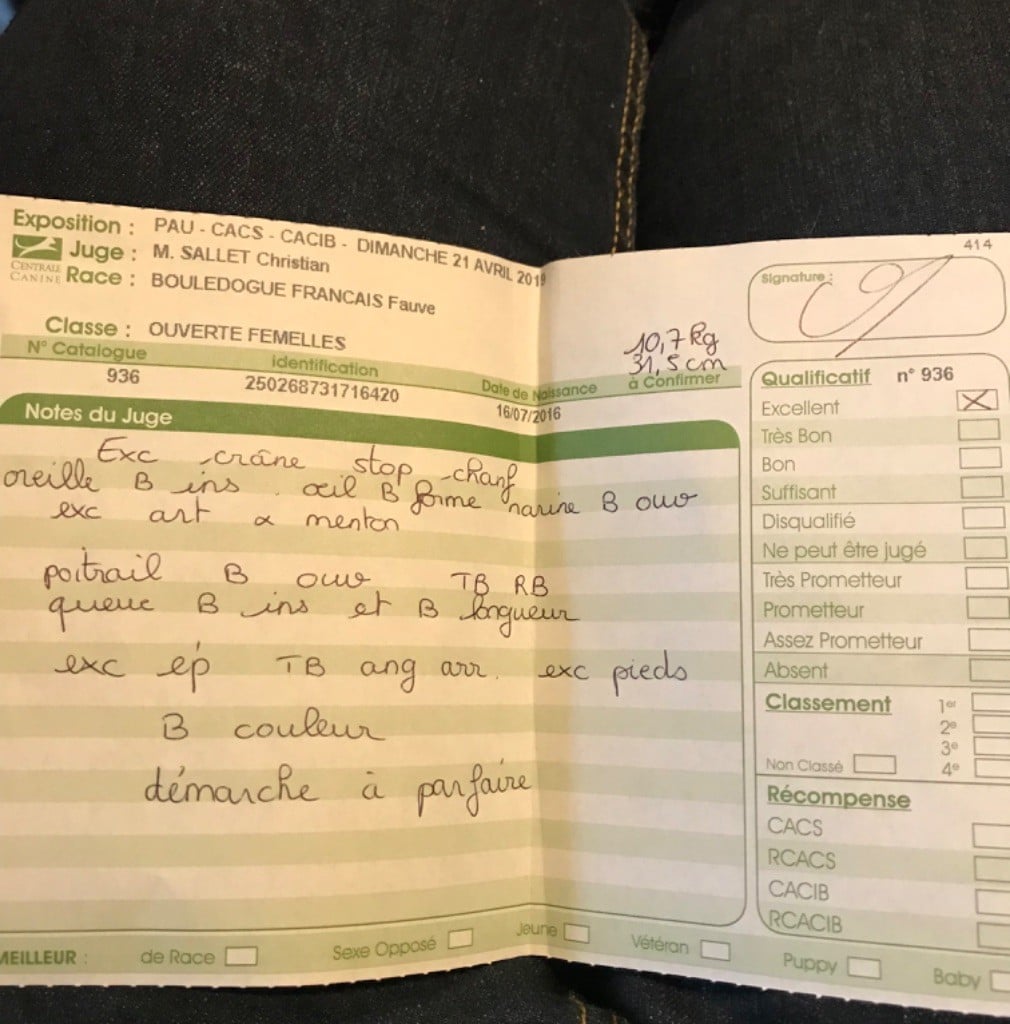 Exposition : PAU - CACS - CACIB - DIMANCHE 21 AVRIL 2019
Juge : M. SALLET Christian
CENTRALE CANINE
Race : BOULEDOGUE FRANCAIS Fauve
Classe : OUVERTE FEMELLES
N° Catalogue Identification Date de Naissance à Confirmer
936 250268731716420 16/07/2016
10,7 kg
31,5 cm
Notes du Juge
Exc crâne stop chanf
oreille B ins. œil B forme narine B ouv
exc art α menton
poitrail B ouv TB RB
queue B ins et B longueur
exc ép TB ang arr. exc pieds
B couleur
démarche à parfaire
414
Signature :
Qualificatif n° 936
Excellent
Très Bon
Bon
Suffisant
Disqualifié
Ne peut être jugé
Très Prometteur
Prometteur
Assez Prometteur
Absent
Classement 1er
2e
3e
Non Classé 4e
Récompense
CACS
RCACS
CACIB
RCACIB
MEILLEUR : de Race Sexe Opposé Jeune Vétéran Puppy Baby